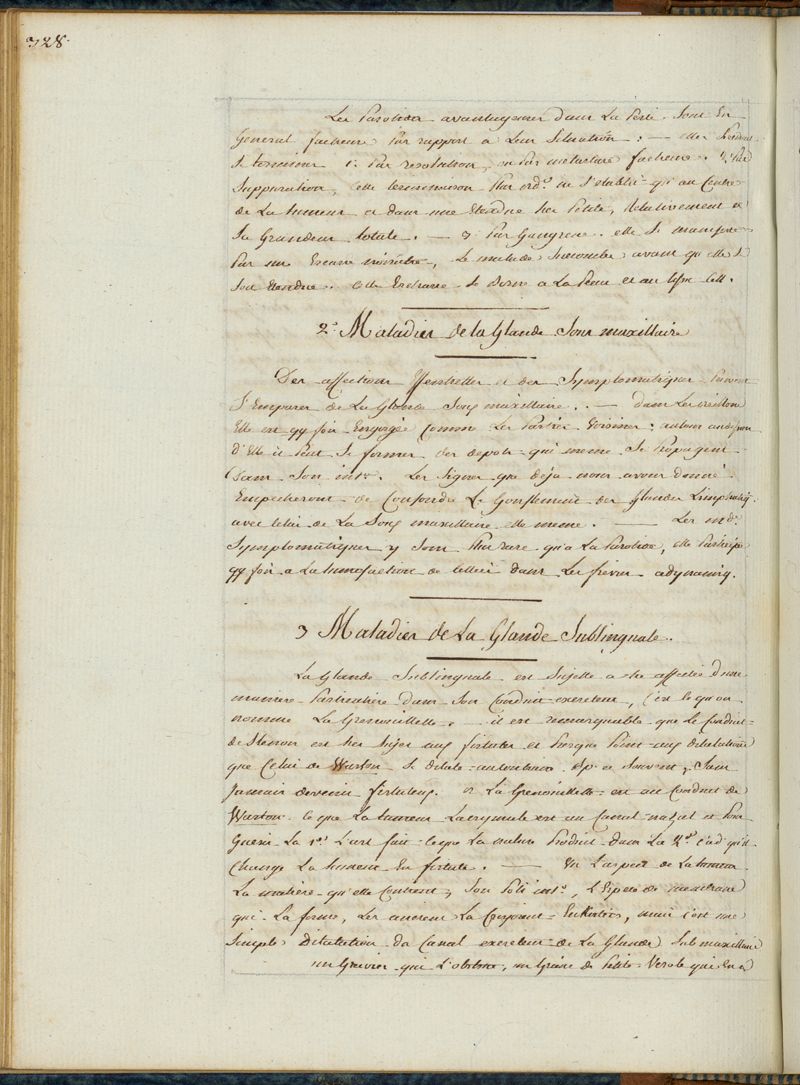 328.
Les Parotides avantageuses dans La Peste Sont En
General facheuses Par rapport a Leur Situation; — elles Peuvent
Se terminer 1.° Par resolution, ou Par metastase facheuse. 2.° Par
Suppuration, Cette terminaison Pur ord.e ne S'etablit qu'au Centre
de La tumeur et dans une Etendue tres Petite, Relativement a
Sa Grandeur totale. — 3 Par Gangrene. elle S.
Par une Escarre noirâtre, Le malade Succombe avant qu'elle S
Soit Etendue. Cette Escharre Se Borne a La Peau et au tissu Cell.
2.° Maladies de la Glande Sous maxillaire
Des affections Essentielles et des Symptomatiques Peuvent
S'Emparer de La Glande Sous maxillaire. — dans Les oreillons
Elle est qq fois Engorgée Comme Les Parties Voisines; autour
d'Elle il Peut Se former des depots qui meme Se Propagent
Dans Son intr. Les Signes que deja nous avons donné
Empecheront de Confondre Le Gonflement des glandes Limphatiq.
avec Celui de La Sous maxillaire elle meme. — Les md.
Symptomatiques y Sont Plus rare qu'a La Parotide, elle Participe
qq fois a La tumefaction de Celleci dans Les fievres adynamiq.
3 Maladies de La Glande Sublinguale.
La Glande Sublinguale est Sujette a etre affectée d'une
maniere Particuliere dans Son Conduit excreteur, C'est Ce qu'on
nomme La Grenouillette. — il est remarquable que Le Conduit
de Stenon est tres Sujet aux fistules et Presque Point aux dilatations
que Celui de Warton Se dilate au contraire Souvent, Sans
Jamais devenir fistuleux. or La Grenouillette est au Conduit de
Warton Ce que La tumeur Lacrymale est au Canal nazal et Pour
Guerir La 1.re L'art fait Ce que La nature Produit dans La 2.de c'ad qu'il
Change La tumeur En fistule. — En L'aspect de La tumeur
La matiere qu'elle Contient, Son Poli intr., L'Espece de membrane
qui La forme, Les anciens La Croyoient Enkistée, mais c'est une
Simple Dilatation du Canal excreteur de La Glande Submaxillaire
un Gravier qui L'obstrue, un Grain de Petite Verole qui En a